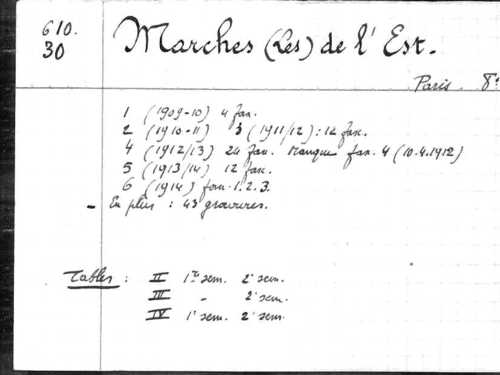 610.
30
Marches (Les) de l'Est.
Paris. 8°
1 (1909-10) 4 fan.
2 (1910-11) 3 (1911/12): 12 fan.
4 (1912/13) 24 fan. manque fan. 4 (10.4.1912)
5 (1913/14) 12 fan.
6 (1914) fan. 1. 2. 3.
- En plus : 43 gravures.
Tables : II 1re sem. 2e sem.
III „ 2e sem.
IV 1e sem. 2e sem.